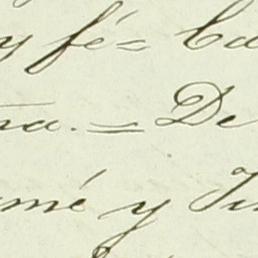 y fé = Ca
na. = De
mé y Ju